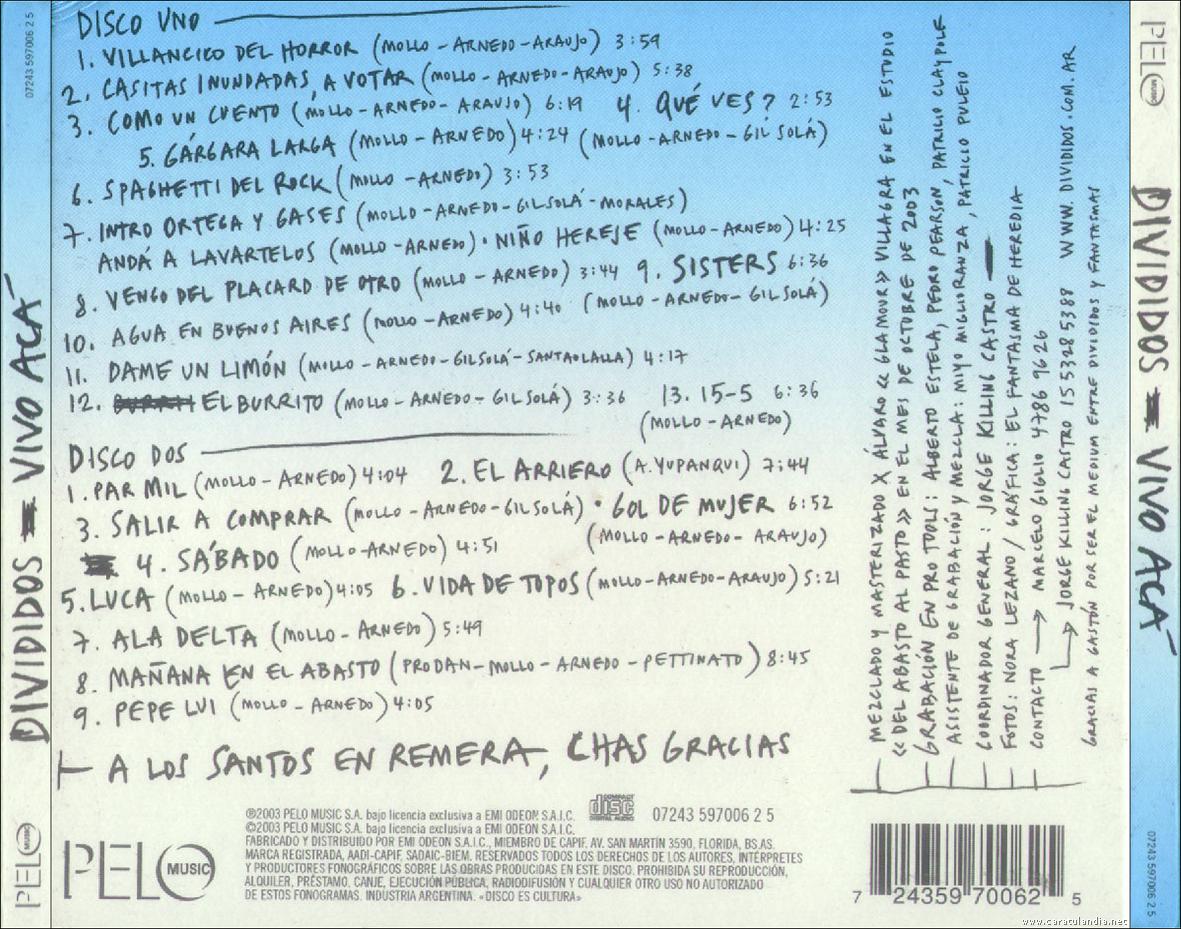 DISCO UNO
1. VILLANCICO DEL HORROR (MOLLO - ARNEDO - ARAUJO) 3:59
2. CASITAS INUNDADAS, A VOTAR (MOLLO - ARNEDO - ARAUJO) 5:38
3. COMO UN CUENTO (MOLLO - ARNEDO - ARAUJO) 6:19 4. QUÉ VES? 2:53
5. GÁRGARA LARGA (MOLLO - ARNEDO) 4:24 (MOLLO - ARNEDO - GIL SOLÁ)
6. SPAGHETTI DEL ROCK (MOLLO - ARNEDO) 3:53
7. INTRO ORTEGA Y GASES (MOLLO - ARNEDO - GIL SOLÁ - MORALES)
ANDÁ A LAVARTELOS (MOLLO - ARNEDO) · NIÑO HEREJE (MOLLO - ARNEDO) 4:25
8. VENGO DEL PLACARD DE OTRO (MOLLO - ARNEDO) 3:44 9. SISTERS 6:36
10. AGUA EN BUENOS AIRES (MOLLO - ARNEDO) 4:40 (MOLLO - ARNEDO - GIL SOLÁ)
11. DAME UN LIMÓN (MOLLO - ARNEDO - GIL SOLÁ - SANTAOLALLA) 4:17
12. EL BURRITO (MOLLO - ARNEDO - GIL SOLÁ) 3:36 13. 15-5 6:36
(MOLLO - ARNEDO)
DISCO DOS
1. PAR MIL (MOLLO - ARNEDO) 4:04 2. EL ARRIERO (A. YUPANQUI) 7:44
3. SALIR A COMPRAR (MOLLO - ARNEDO - GIL SOLÁ) · GOL DE MUJER 6:52
4. SÁBADO (MOLLO - ARNEDO) 4:51 (MOLLO - ARNEDO - ARAUJO)
5. LUCA (MOLLO - ARNEDO) 4:05 6. VIDA DE TOPOS (MOLLO - ARNEDO - ARAUJO) 5:21
7. ALA DELTA (MOLLO - ARNEDO) 5:49
8. MAÑANA EN EL ABASTO (PRODAN - MOLLO - ARNEDO - PETTINATO) 8:45
9. PEPE LUI (MOLLO - ARNEDO) 4:05
A LOS SANTOS EN REMERA, CHAS GRACIAS
MEZCLADO Y MASTERIZADO X ÁLVARO «GLAMOUR» VILLAGRA EN EL ESTUDIO
«DEL ABASTO AL PASTO» EN EL MES DE OCTUBRE DE 2003
GRABACIÓN EN PRO TOOLS: ALBERTO ESTELA, PEDRO PEARSON, PATRICIO CLAYPOLE
ASISTENTE DE GRABACIÓN Y MEZCLA: MIYO MIGLIORANZA, PATRICIO PULEIO
COORDINADOR GENERAL: JORGE KILLING CASTRO
FOTOS: NORA LEZANO / GRÁFICA: EL FANTASMA DE HEREDIA
CONTACTO → MARCELO GIGLIO 4786 9626
→ JORGE KILLING CASTRO 15 5328 5388 WWW.DIVIDIDOS.COM.AR
GRACIAS A GASTÓN POR SER EL MEDIUM ENTRE DIVIDIDOS Y FANTASMAS
PELO MUSIC
℗2003 PELO MUSIC S.A. bajo licencia exclusiva a EMI ODEON S.A.I.C.
©2003 PELO MUSIC S.A. bajo licencia exclusiva a EMI ODEON S.A.I.C.
FABRICADO Y DISTRIBUIDO POR EMI ODEON S.A.I.C., MIEMBRO DE CAPIF. AV. SAN MARTÍN 3590, FLORIDA, BS.AS.
MARCA REGISTRADA, AADI-CAPIF, SADAIC-BIEM. RESERVADOS TODOS LOS DERECHOS DE LOS AUTORES, INTÉRPRETES
Y PRODUCTORES FONOGRÁFICOS SOBRE LAS OBRAS PRODUCIDAS EN ESTE DISCO. PROHIBIDA SU REPRODUCCIÓN,
ALQUILER, PRÉSTAMO, CANJE, EJECUCIÓN PÚBLICA, RADIODIFUSIÓN Y CUALQUIER OTRO USO NO AUTORIZADO
DE ESTOS FONOGRAMAS. INDUSTRIA ARGENTINA. «DISCO ES CULTURA»
COMPACT disc DIGITAL AUDIO
07243 597006 2 5
7 24359 70062 5
www.caratulandia.net
07243 597006 2 5
DIVIDIDOS = VIVO ACÁ
PELO MUSIC
PELO MUSIC
DIVIDIDOS = VIVO ACÁ
07243 597006 2 5